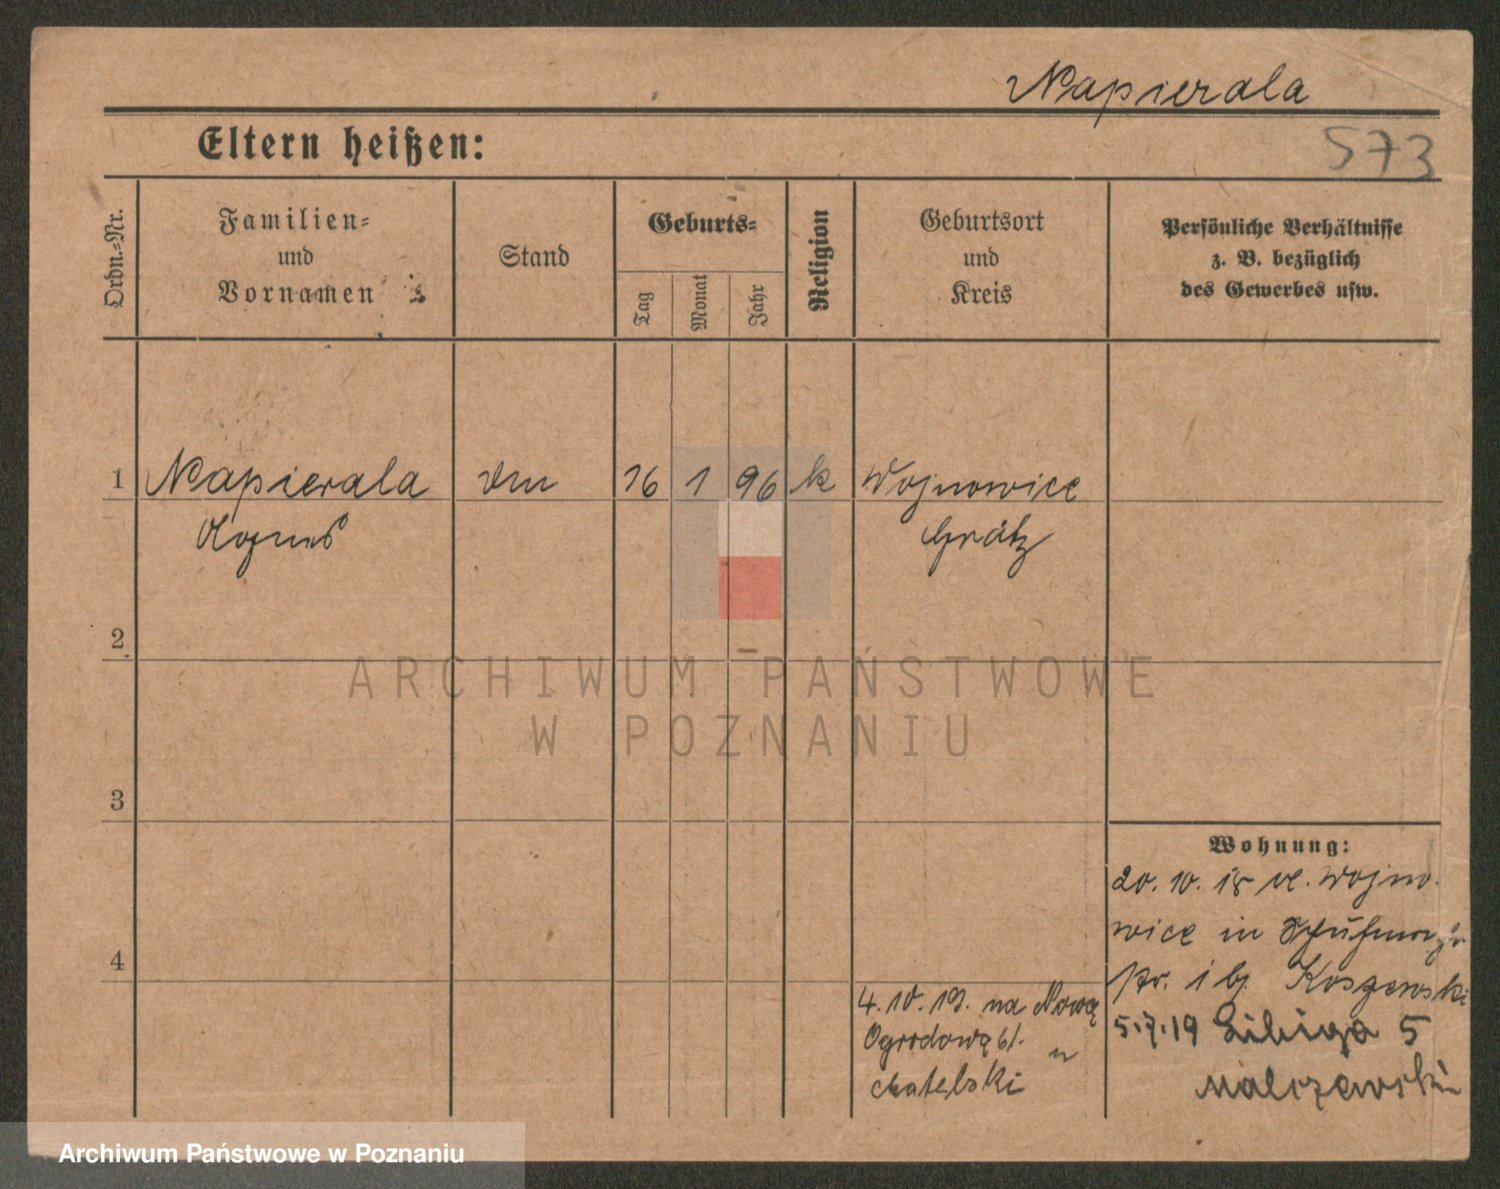 Napierala
573
Eltern heißen:
Ordn.-Nr.
Familien-
und
Vornamen
Stand
Geburts-
Tag
Monat
Jahr
Religion
Geburtsort
und
Kreis
Persönliche Verhältnisse
z. B. bezüglich
des Gewerbes usw.
1 Napierala 16 1 96 k Wojnowice
Agnes Grätz
2
ARCHIWUM PAŃSTWOWE
W POZNANIU
3
4
Wohnung:
20. 10. 18 Wojno
wice in
pr. 1 bj Koszewski
5.7.19 Libiga 5
Malczewski
4.10.19. na Nową
Ogrodową 61.
u
Archiwum Państwowe w Poznaniu